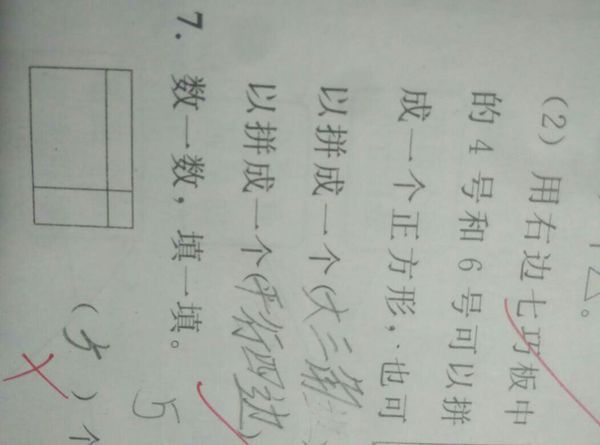 (2) 用右边七巧板中
的 4 号和 6 号可以拼
成一个正方形,也可
以拼成一个(大三
以拼成一个(平行四边)
7. 数一数,填一填。
5
( ) 个